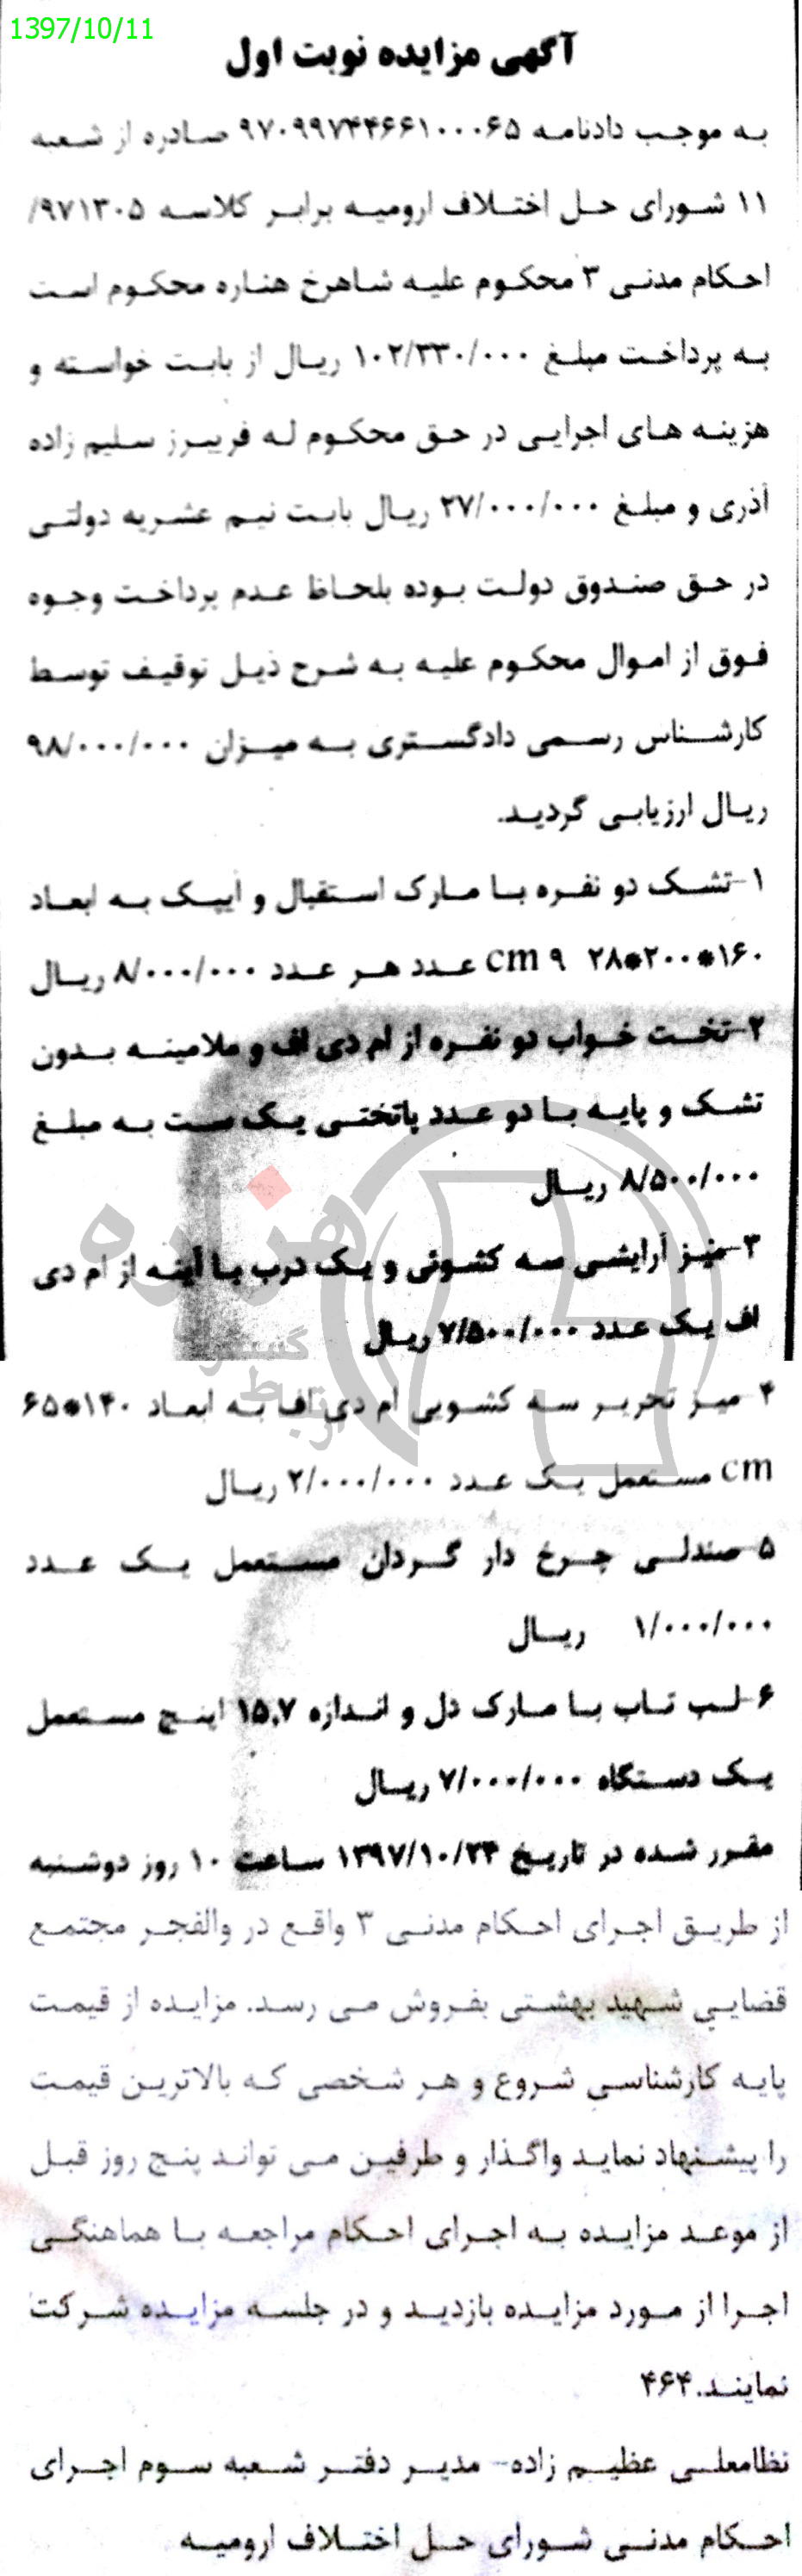 1397/10/11
آگهی مزایده نوبت اول
به موجب دادنامه ۹۷۰۹۹۷۴۴۶۶۱۰۰۰۶۵ صادره از شعبه
۱۱ شورای حل اختلاف ارومیه برابر کلاسه ۹۷۱۳۰۵/
احکام مدنی ۳ محکوم علیه شاهرخ هناره محکوم است
به پرداخت مبلغ ۱۰۲/۳۳۰/۰۰۰ ریال از بابت خواسته و
هزینه های اجرایی در حق محکوم له فریبرز سلیم زاده
آذری و مبلغ ۲۷/۰۰۰/۰۰۰ ریال بابت نیم عشریه دولتی
در حق صندوق دولت بوده بلحاظ عدم پرداخت وجوه
فوق از اموال محکوم علیه به شرح ذیل توقیف توسط
کارشناس رسمی دادگستری به میزان ۹۸/۰۰۰/۰۰۰
ریال ارزیابی گردید.
۱-تشک دو نفره با مارک استقبال و آپیک به ابعاد
۱۶۰*۲۰۰*۲۸ cm ۹ عدد هر عدد ۸/۰۰۰/۰۰۰ ریال
۲-تخت خواب دو نفره از ام دی اف و ملامینه بدون
تشک و پایه با دو عدد پاتختی یک ست به مبلغ
۸/۵۰۰/۰۰۰ ریال
۳-میز آرایشی سه کشوئی و یک درب با آینه از ام دی
اف یک عدد ۷/۵۰۰/۰۰۰ ریال
هزاره
گستر
ارتباط
۴ میز تحریر سه کشویی ام دی اف به ابعاد ۱۴۰*۶۵
cm مستعمل یک عدد ۲/۰۰۰/۰۰۰ ریال
۵-صندلی چرخ دار گردان مستعمل یک عدد
۱/۰۰۰/۰۰۰ ریال
۶-لب تاب با مارک دل و اندازه ۱۵,۷ اینچ مستعمل
یک دستگاه ۷/۰۰۰/۰۰۰ ریال
مقرر شده در تاریخ ۱۳۹۷/۱۰/۲۴ ساعت ۱۰ روز دوشنبه
از طریق اجرای احکام مدنی ۳ واقع در والفجر مجتمع
قضایی شهید بهشتی بفروش می رسد. مزایده از قیمت
پایه کارشناسی شروع و هر شخصی که بالاترین قیمت
را پیشنهاد نماید واگذار و طرفین می تواند پنج روز قبل
از موعد مزایده به اجرای احکام مراجعه با هماهنگی
اجرا از مورد مزایده بازدید و در جلسه مزایده شرکت
نمایند.۴۶۴
نظامعلی عظیم زاده- مدیر دفتر شعبه سوم اجرای
احکام مدنی شورای حل اختلاف ارومیه